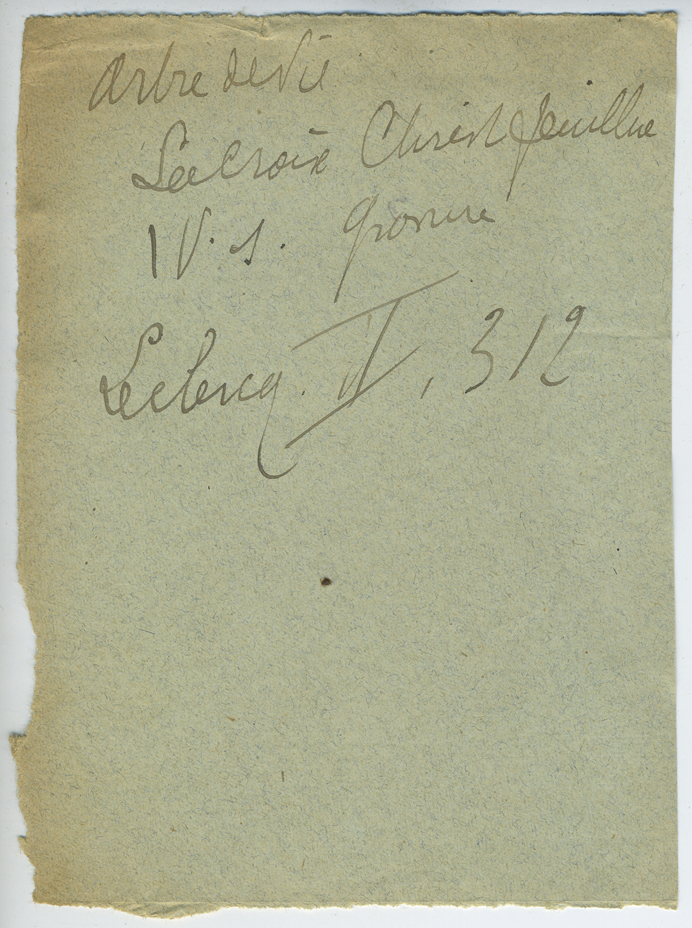 Arbre de Vie
La Croix Christ feuillue
IV. s. gravure
Leclercq. II, 312